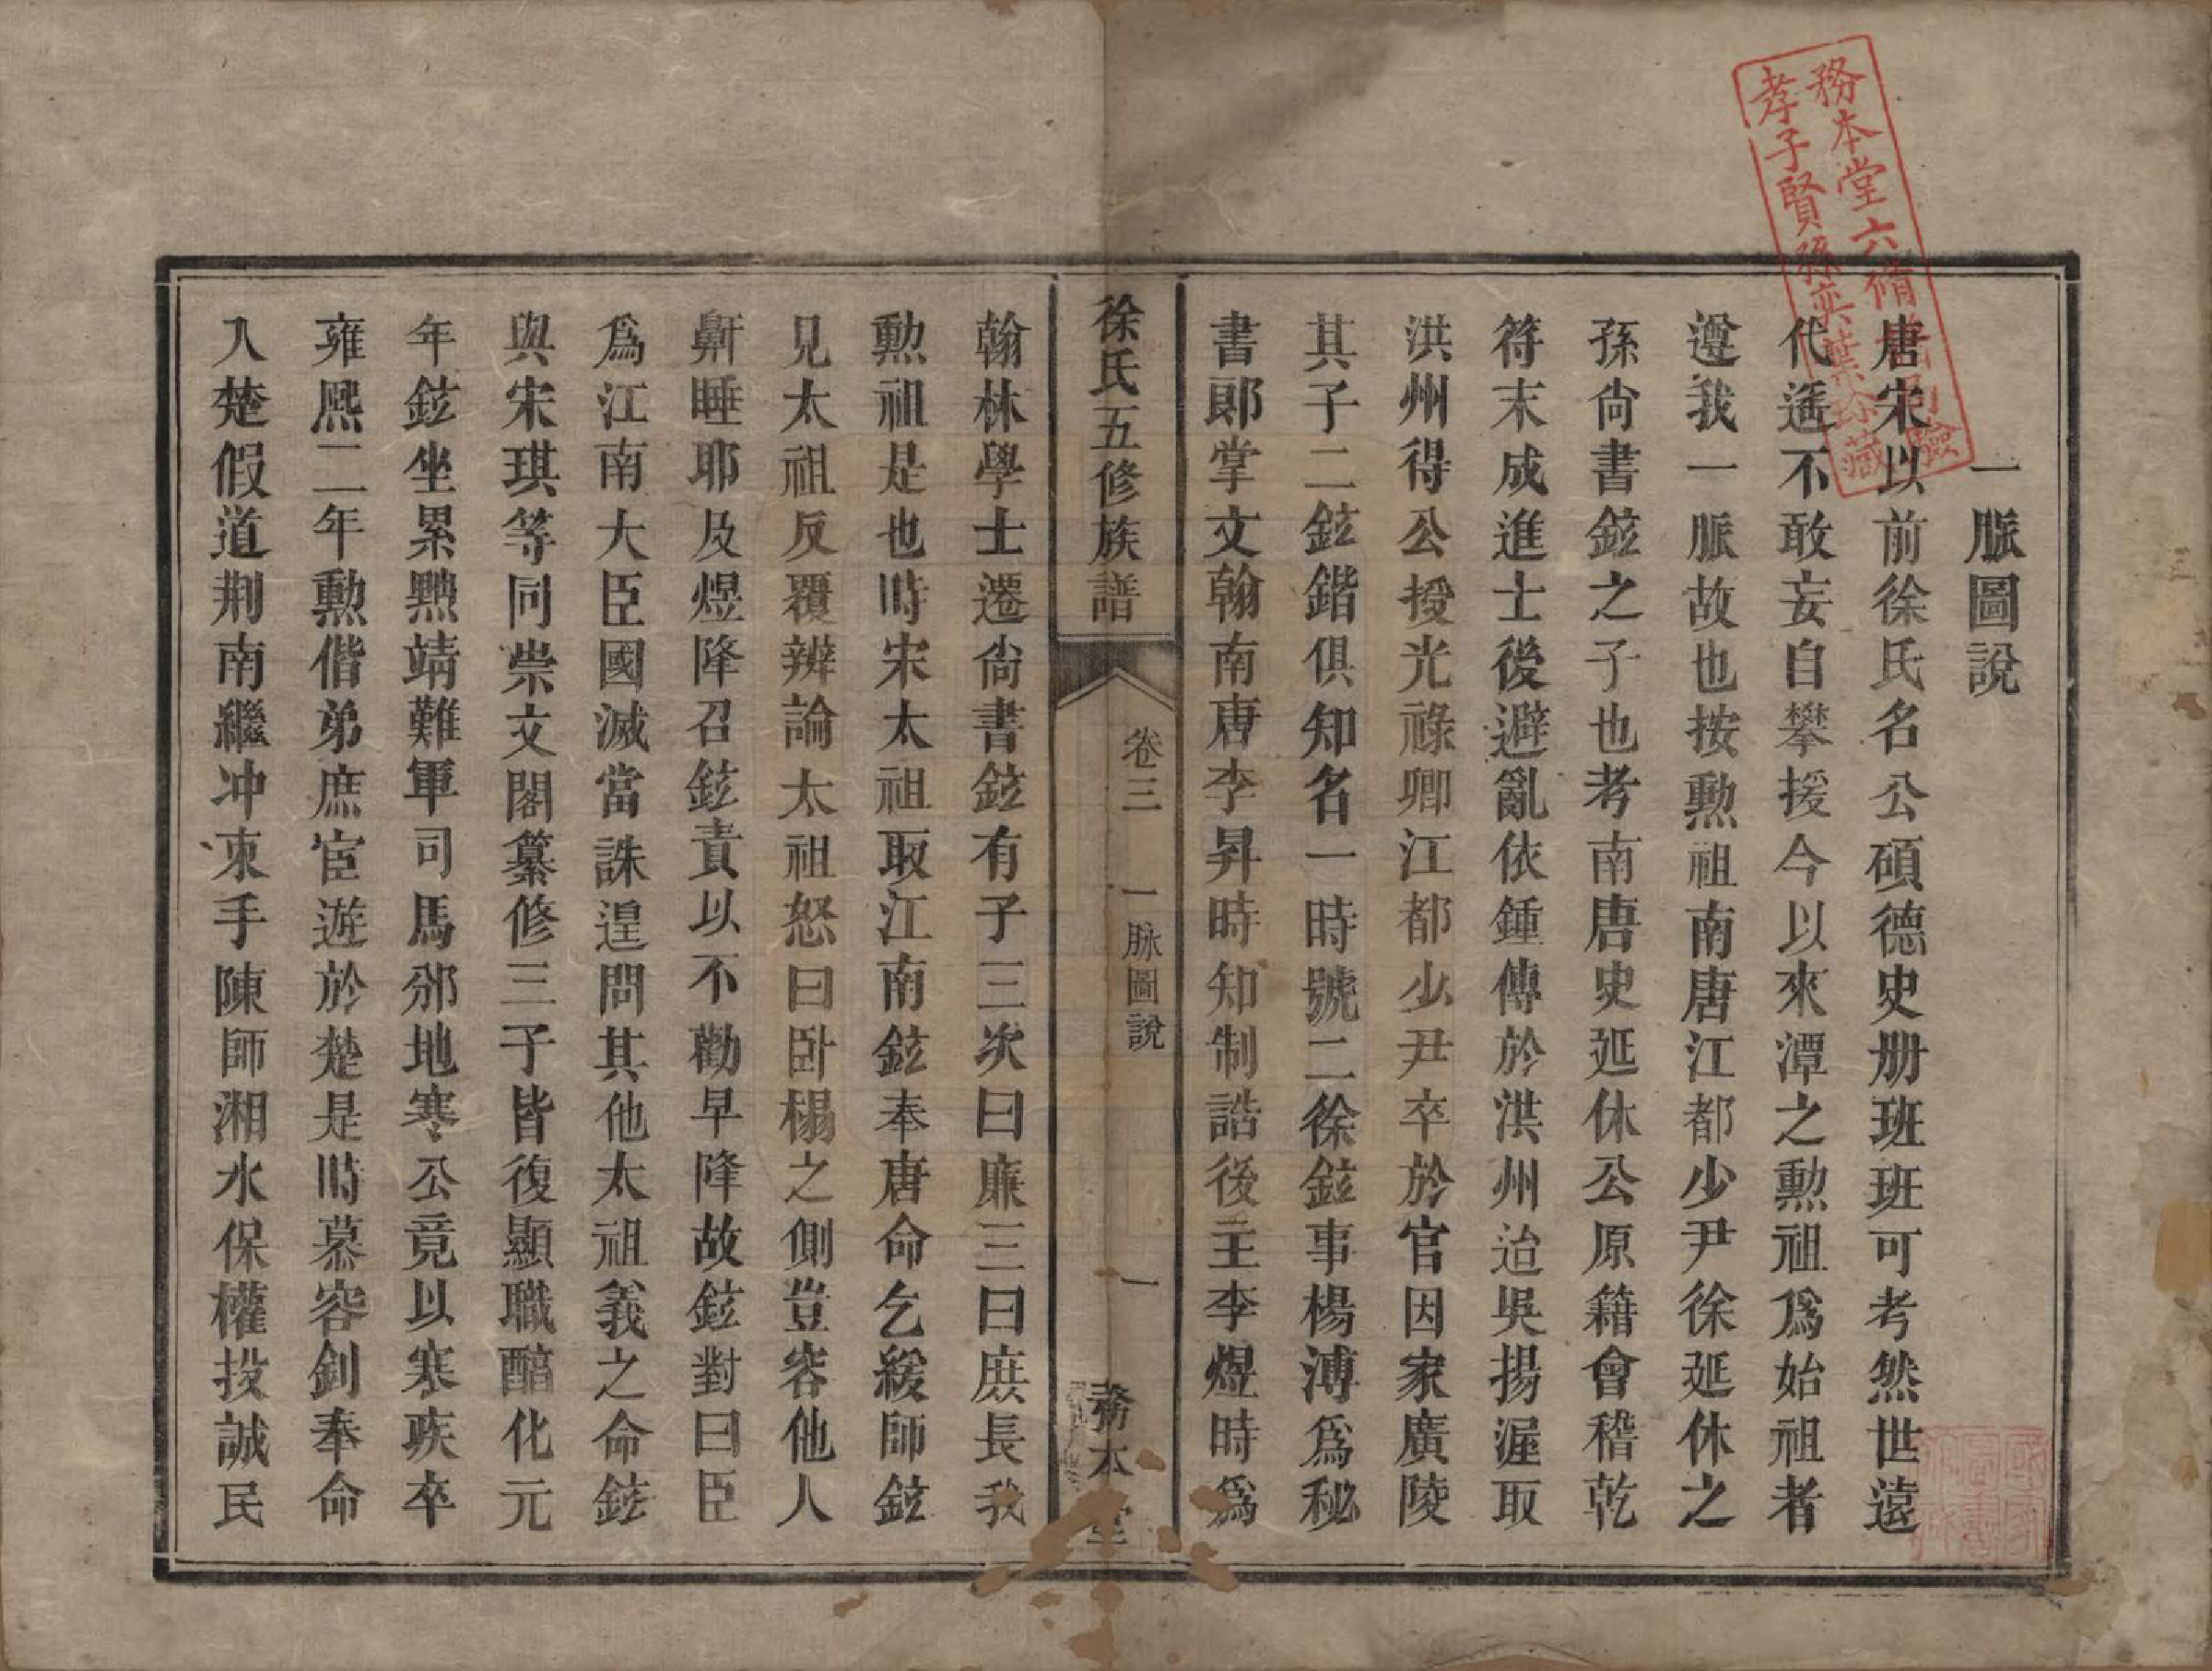 一脈圖說
唐宋以前徐氏名公碩德史册班班可考然世遠
代遙不敢妄自攀援今以來潭之勲祖爲始祖者
遵我一脈故也按勲祖南唐江都少尹徐延休之
孫尙書鉉之子也考南唐史延休公原籍會稽乾
符末成進士後避亂依鍾傳於洪州迨吳揚渥取
洪州得公授光祿卿江都少尹卒於官因家廣陵
其子二鉉鍇俱知名一時號二徐鉉事楊溥爲秘
書郞掌文翰南唐李昇時知制誥後主李煜時爲
徐氏五修族譜
卷三
一脉圖說
一
務本堂
翰林學士遷尙書鉉有子三次曰廉三曰庶長我
勲祖是也時宋太祖取江南鉉奉唐命乞緩師鉉
見太祖反覆辨論太祖怒曰卧榻之側豈容他人
鼾睡耶及煜降召鉉責以不勸早降故鉉對曰臣
爲江南大臣國滅當誅遑問其他太祖義之命鉉
與宋琪等同崇文閣纂修三子皆復顯職醅化元
年鉉坐累黜靖難軍司馬邠地寒公竟以寒疾卒
雍熙二年勲偕弟庶宦遊於楚是時慕容釗奉命
入楚假道荆南繼冲束手陳師湘水保權投誠民
務本堂六脩
孝子賢孫奕葉珍藏